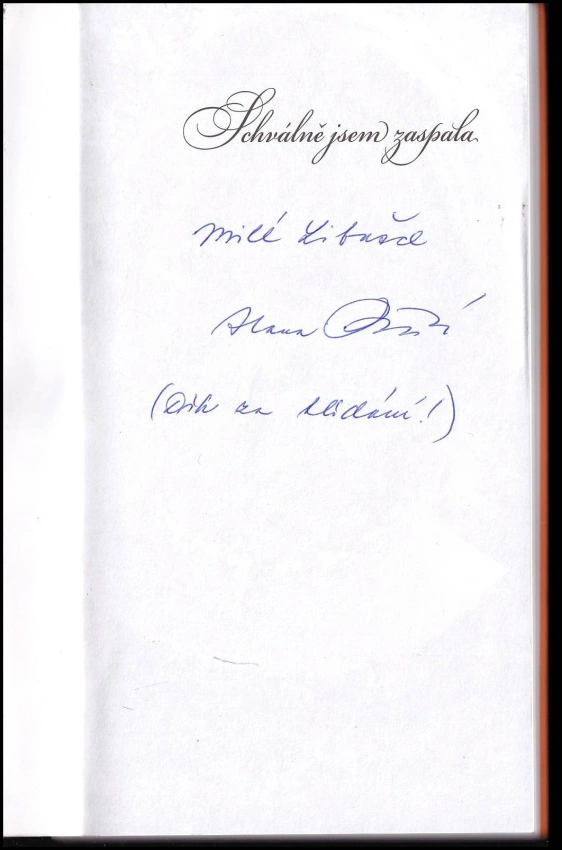 Schválně jsem zaspala
Milé Libušce
Hana
(Dík za hlídání!)